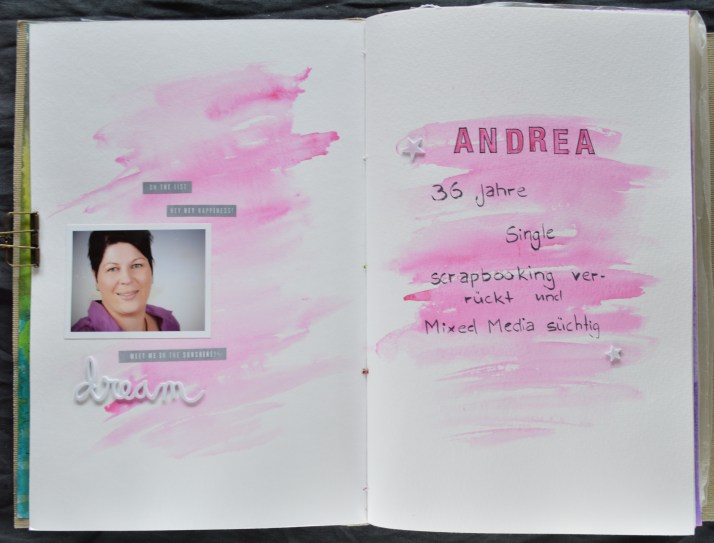 ON THE LIST
HEY BOY HAPPINESS!
MEET ME IN THE SUNSHINE!
dream
ANDREA
36 Jahre
Single
scrapbooking ver-
rückt und
Mixed Media süchtig